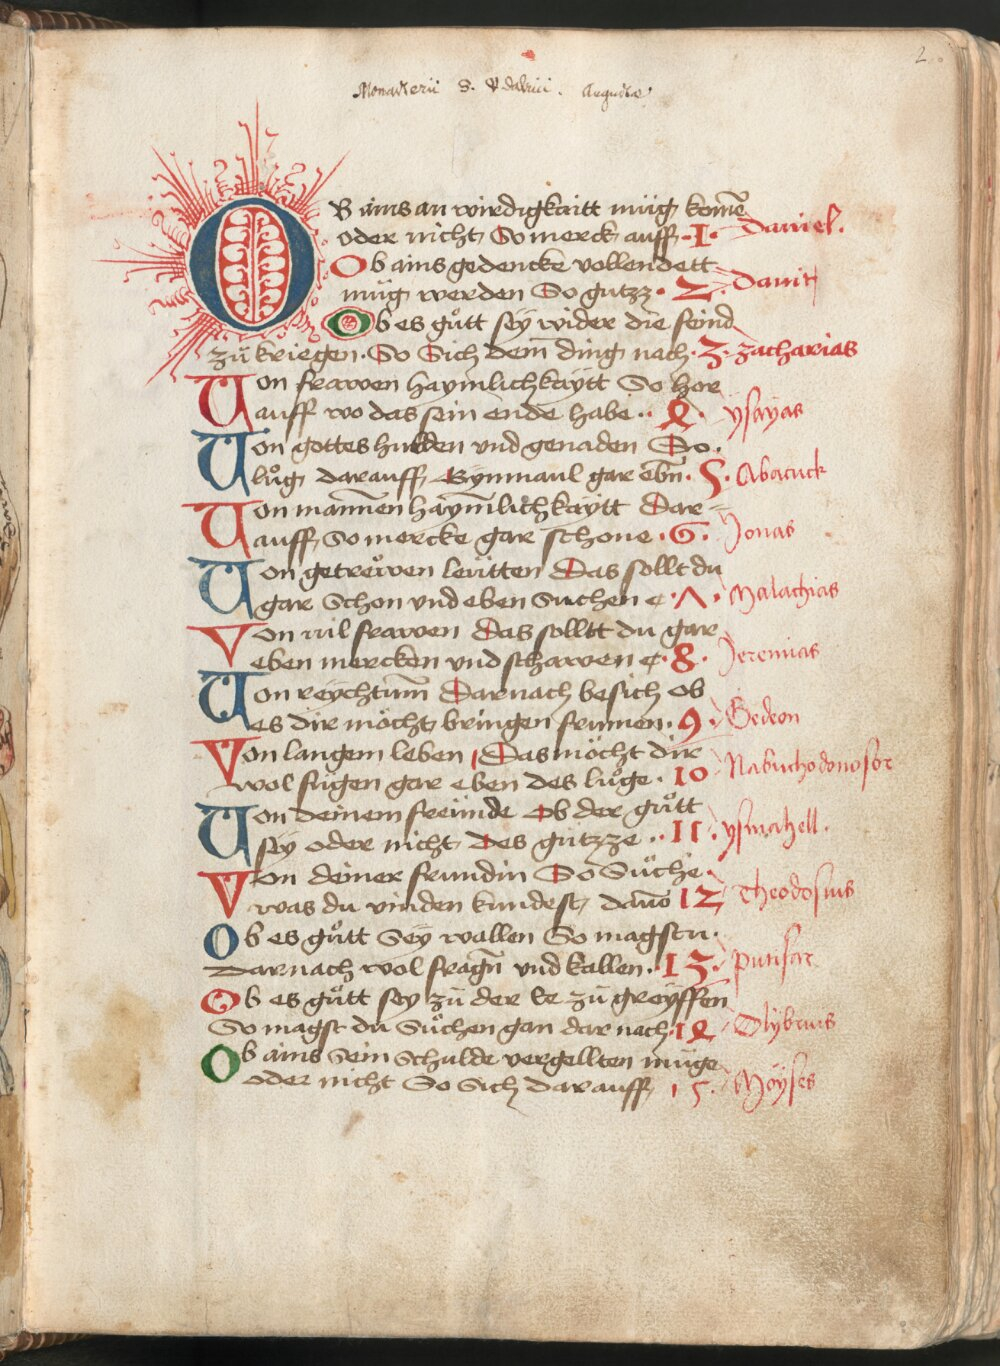 2
Monasterii S. Vdalrici. Augustae
OB ains an wirdigkaitt müg kome᷑
oder nicht So merck auff ·1· Daniel.
Ob ains gedencke vollendett
müg werden So gutzz · 2 · Dauit
Ob es gu᷑tt sey wider die feind
zu kriegen · So Sich dem ding nach · 3 · zacharias
Uon frawen haymlichkaytt So hor
auff wo das sein ende habe ·· 4 · ysayas
Uon gottes hulden vnd genaden So
luog darauff, Bynmaul gar ebn̄ · 5 · Abacuck
Uon mannen haymlichkaytt Dar=
auff, So mercke gar schone · 6 · Jonas
Uon getrewen leutten Das sollt du
gar Schon vnd eben Suchen · 7 · Malachias
Von vil frawen Das solltt du gar
eben mercken vnd schawen · 8 · Jeremias
Uon reychtum̄ Darnach besich ob
es dir möcht bringen frumen · 9 · Gedeon
Von langem leben, Das möcht dir
wol fugen gar eben des luoge · 10 Nabuchodonosor
Uon deinem freunde Ob der guott
sey oder nicht Des gutzze ·· 11 · ysmahell ·
Von deiner frundin So Suche
was du vinden kundest, dauō 12 Theodosius
Ob es guott Sey wallen So magstu ·
Darnach wol fragn̄ vnd kallen · 13 · putifar
Ob es guott sey zu der Ee zu greyffen
So magst du Suochen gan dar nach · 14 Olybrius
Ob ains Sein Schulde vergellten müge
oder nicht So Sich darauff, 15 Moyses